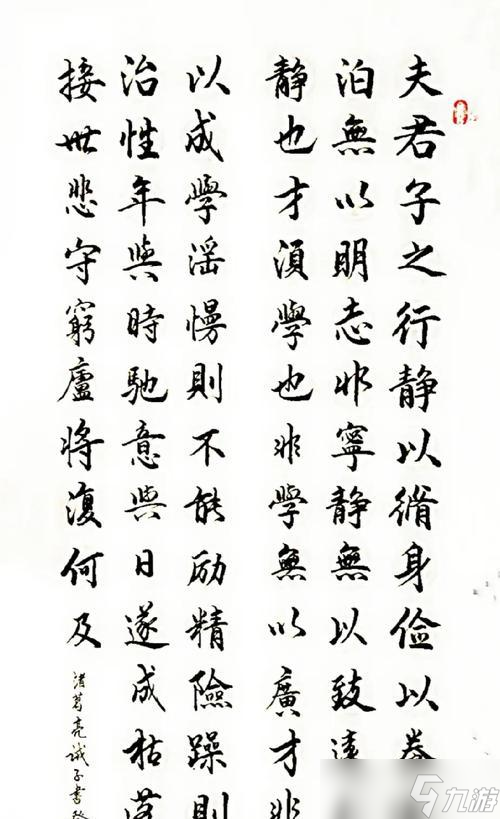 夫君子之行静以脩身俭以養
泊無以明志非寧静無以致遠
静也才須學也非學無以廣才非
以成學淫慢則不能励精險躁則
治性年與時馳意與日遂成枯落
接世悲守窮廬將復何及
諸葛亮诫子書
九游